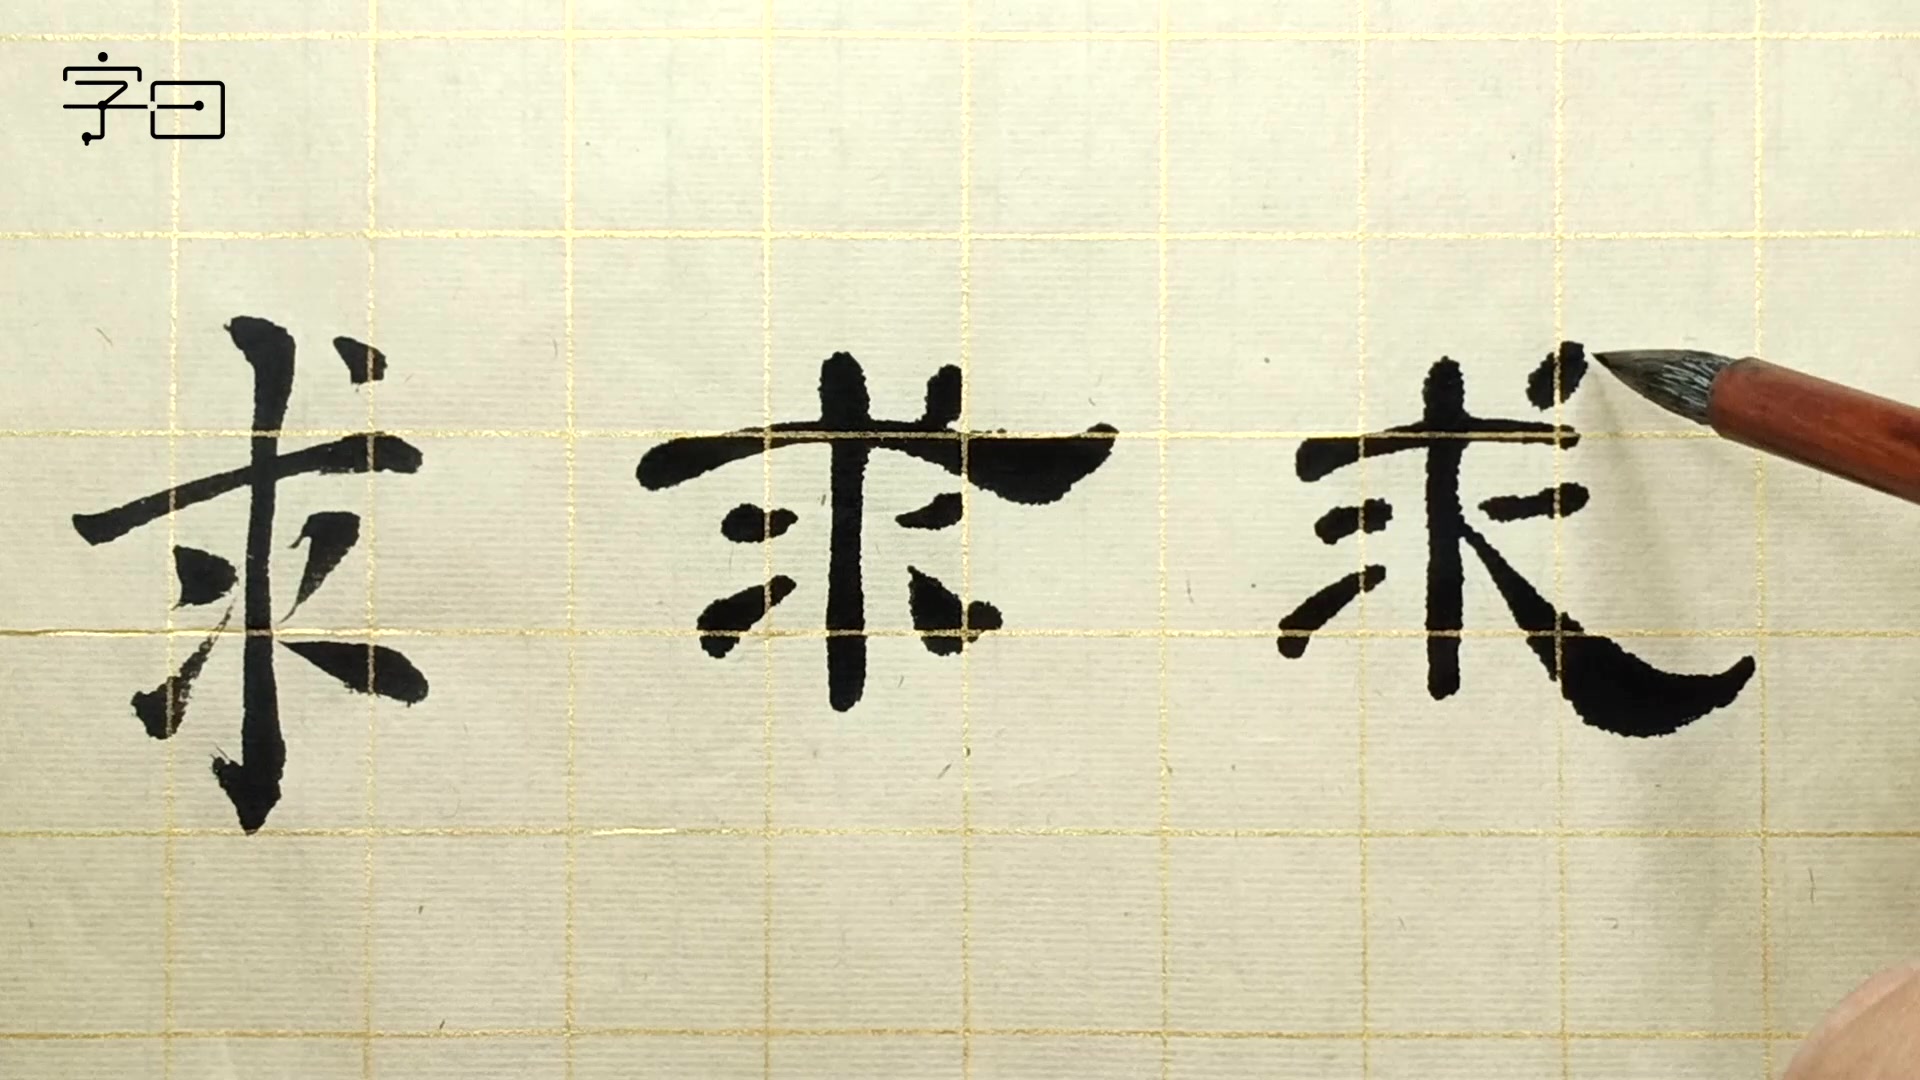 字日
求 求 求